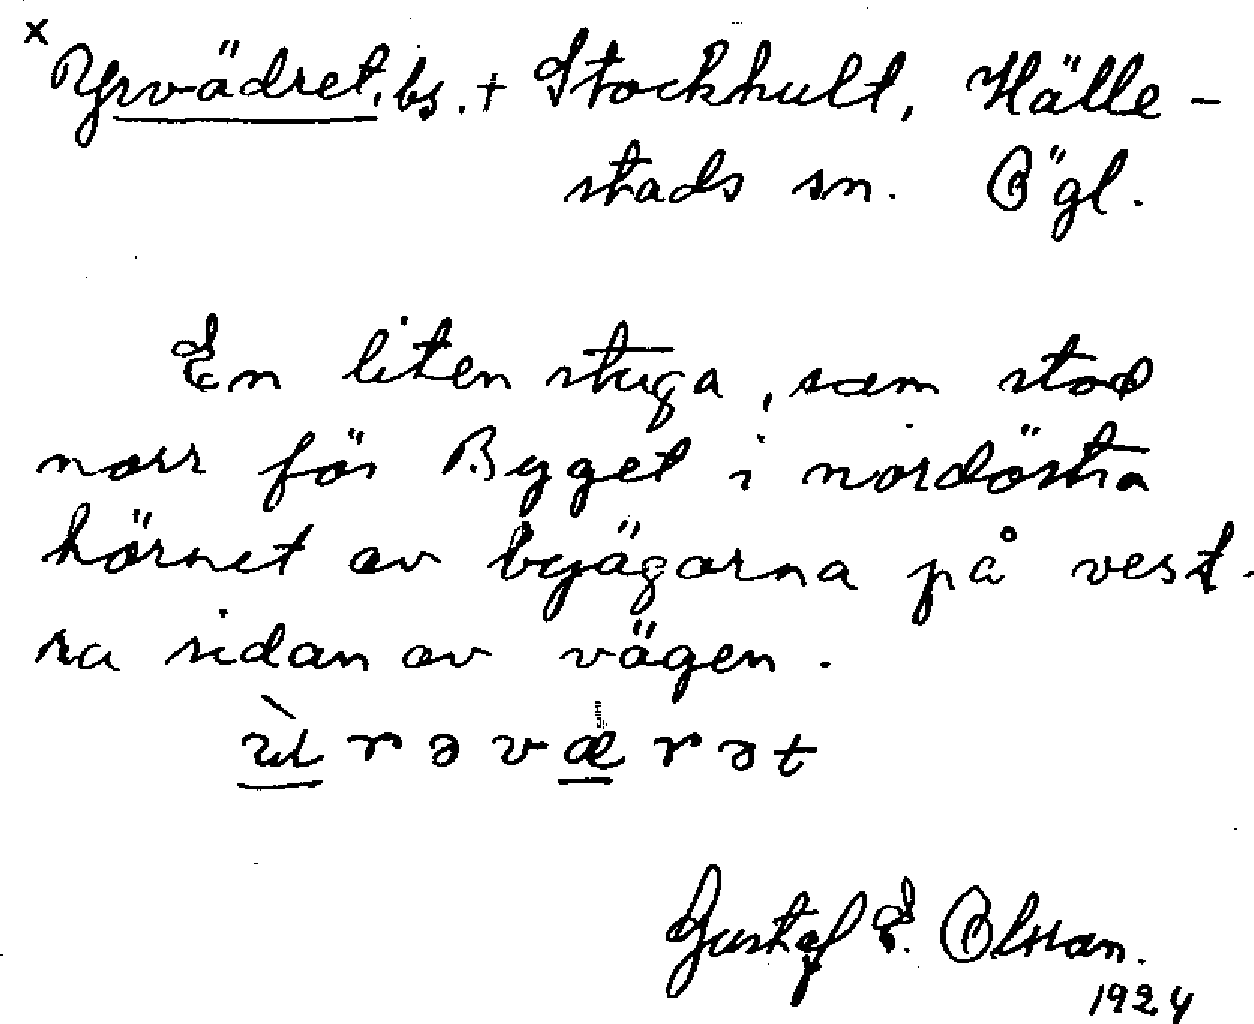 x Yrvädret, bs. + Stockhult, Hälle-
stads sn. Ögl.
En liten stuga, som stod
norr för Byget i nordöstra
hörnet av byägorna på vest-
ra sidan av vägen.
Gustaf E. Olsson.
1924